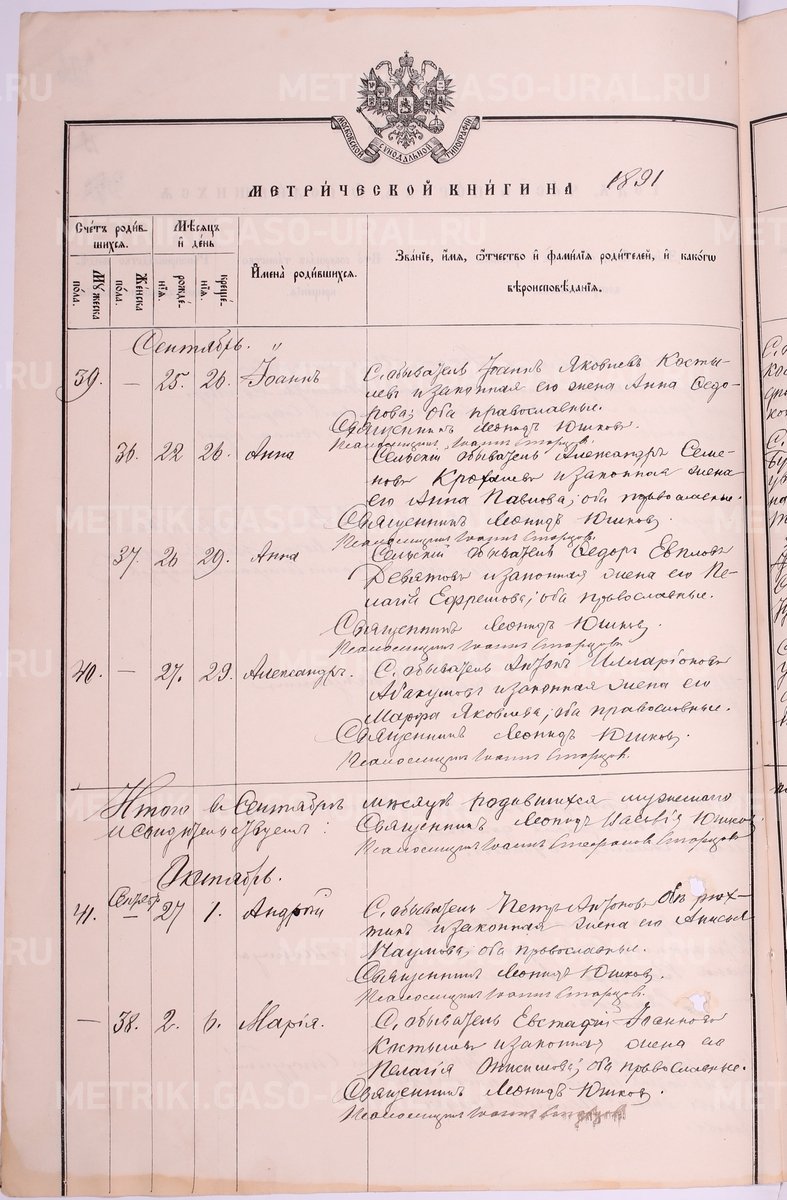 МОСКОВСКОЙ СѴНОДАЛЬНОЙ ТИПОГРАФІИ
МЕТРИ́ЧЕСКОЙ КНИ́ГИ НА 1891
Сче́тъ роди́вшихся.
Мѣ́сяцъ и҆ де́нь
И҆мена̀ роди́вшихся.
Зва́нїе, и҆́мя, ѻ҆́тчество и҆ фами́лїѧ роди́телей, и҆ како́гѡ вѣроисповѣ́данїѧ.
Му́жеска по́ла.
Же́нска по́ла.
рожде́нїѧ.
креще́нїѧ.
Сентябрь.
39. — 25. 26. Іоаннъ С. обыватель Іоаннъ Яковлевъ Косты-
левъ и законная его жена Анна Ѳедо-
рова; оба православные.
Священникъ Леонидъ Юшковъ.
Псаломщикъ Іоаннъ Старцовъ.
36. 22 26. Анна Сельскій обыватель Александръ Семе-
новъ и законная жена
его Анна Павлова; оба православные.
Священникъ Леонидъ Юшковъ.
Псаломщикъ Іоаннъ Старцовъ.
37. 26 29. Анна Сельскій обыватель Ѳедоръ Евпловъ
Девятовъ и законная жена его Пе-
лагія Ефремова; оба православные.
Священникъ Леонидъ Юшковъ.
Псаломщикъ Іоаннъ Старцовъ
40. — 27. 29. Александръ. С. обыватель Антонъ Илларіоновъ
Абакумовъ и законная жена его
Марфа Яковлева; оба православные.
Священникъ Леонидъ Юшковъ.
Псаломщикъ Іоаннъ Старцовъ.
Итого въ Сентябрѣ мѣсяцѣ родившихся мужескаго
и свидѣтельствуемъ: Священникъ Леонидъ Юшковъ
Псаломщикъ Іоаннъ Стефановъ Старцовъ
Октябрь.
41. Сентябр. — 27 1. Андрей С. обыватель Петръ Антоновъ
и законная жена его Анисья
Наумова; оба православные.
Священникъ Леонидъ Юшковъ.
Псаломщикъ Іоаннъ Старцовъ.
— 38. 2. 6. Марія. С. обыватель Евстафій Іоанновъ
Костылевъ и законная жена его
Пелагія Онисимова; оба православные.
Священникъ Леонидъ Юшковъ.
Псаломщикъ Іоаннъ Старцовъ.
METRIKI.GASO-URAL.RU